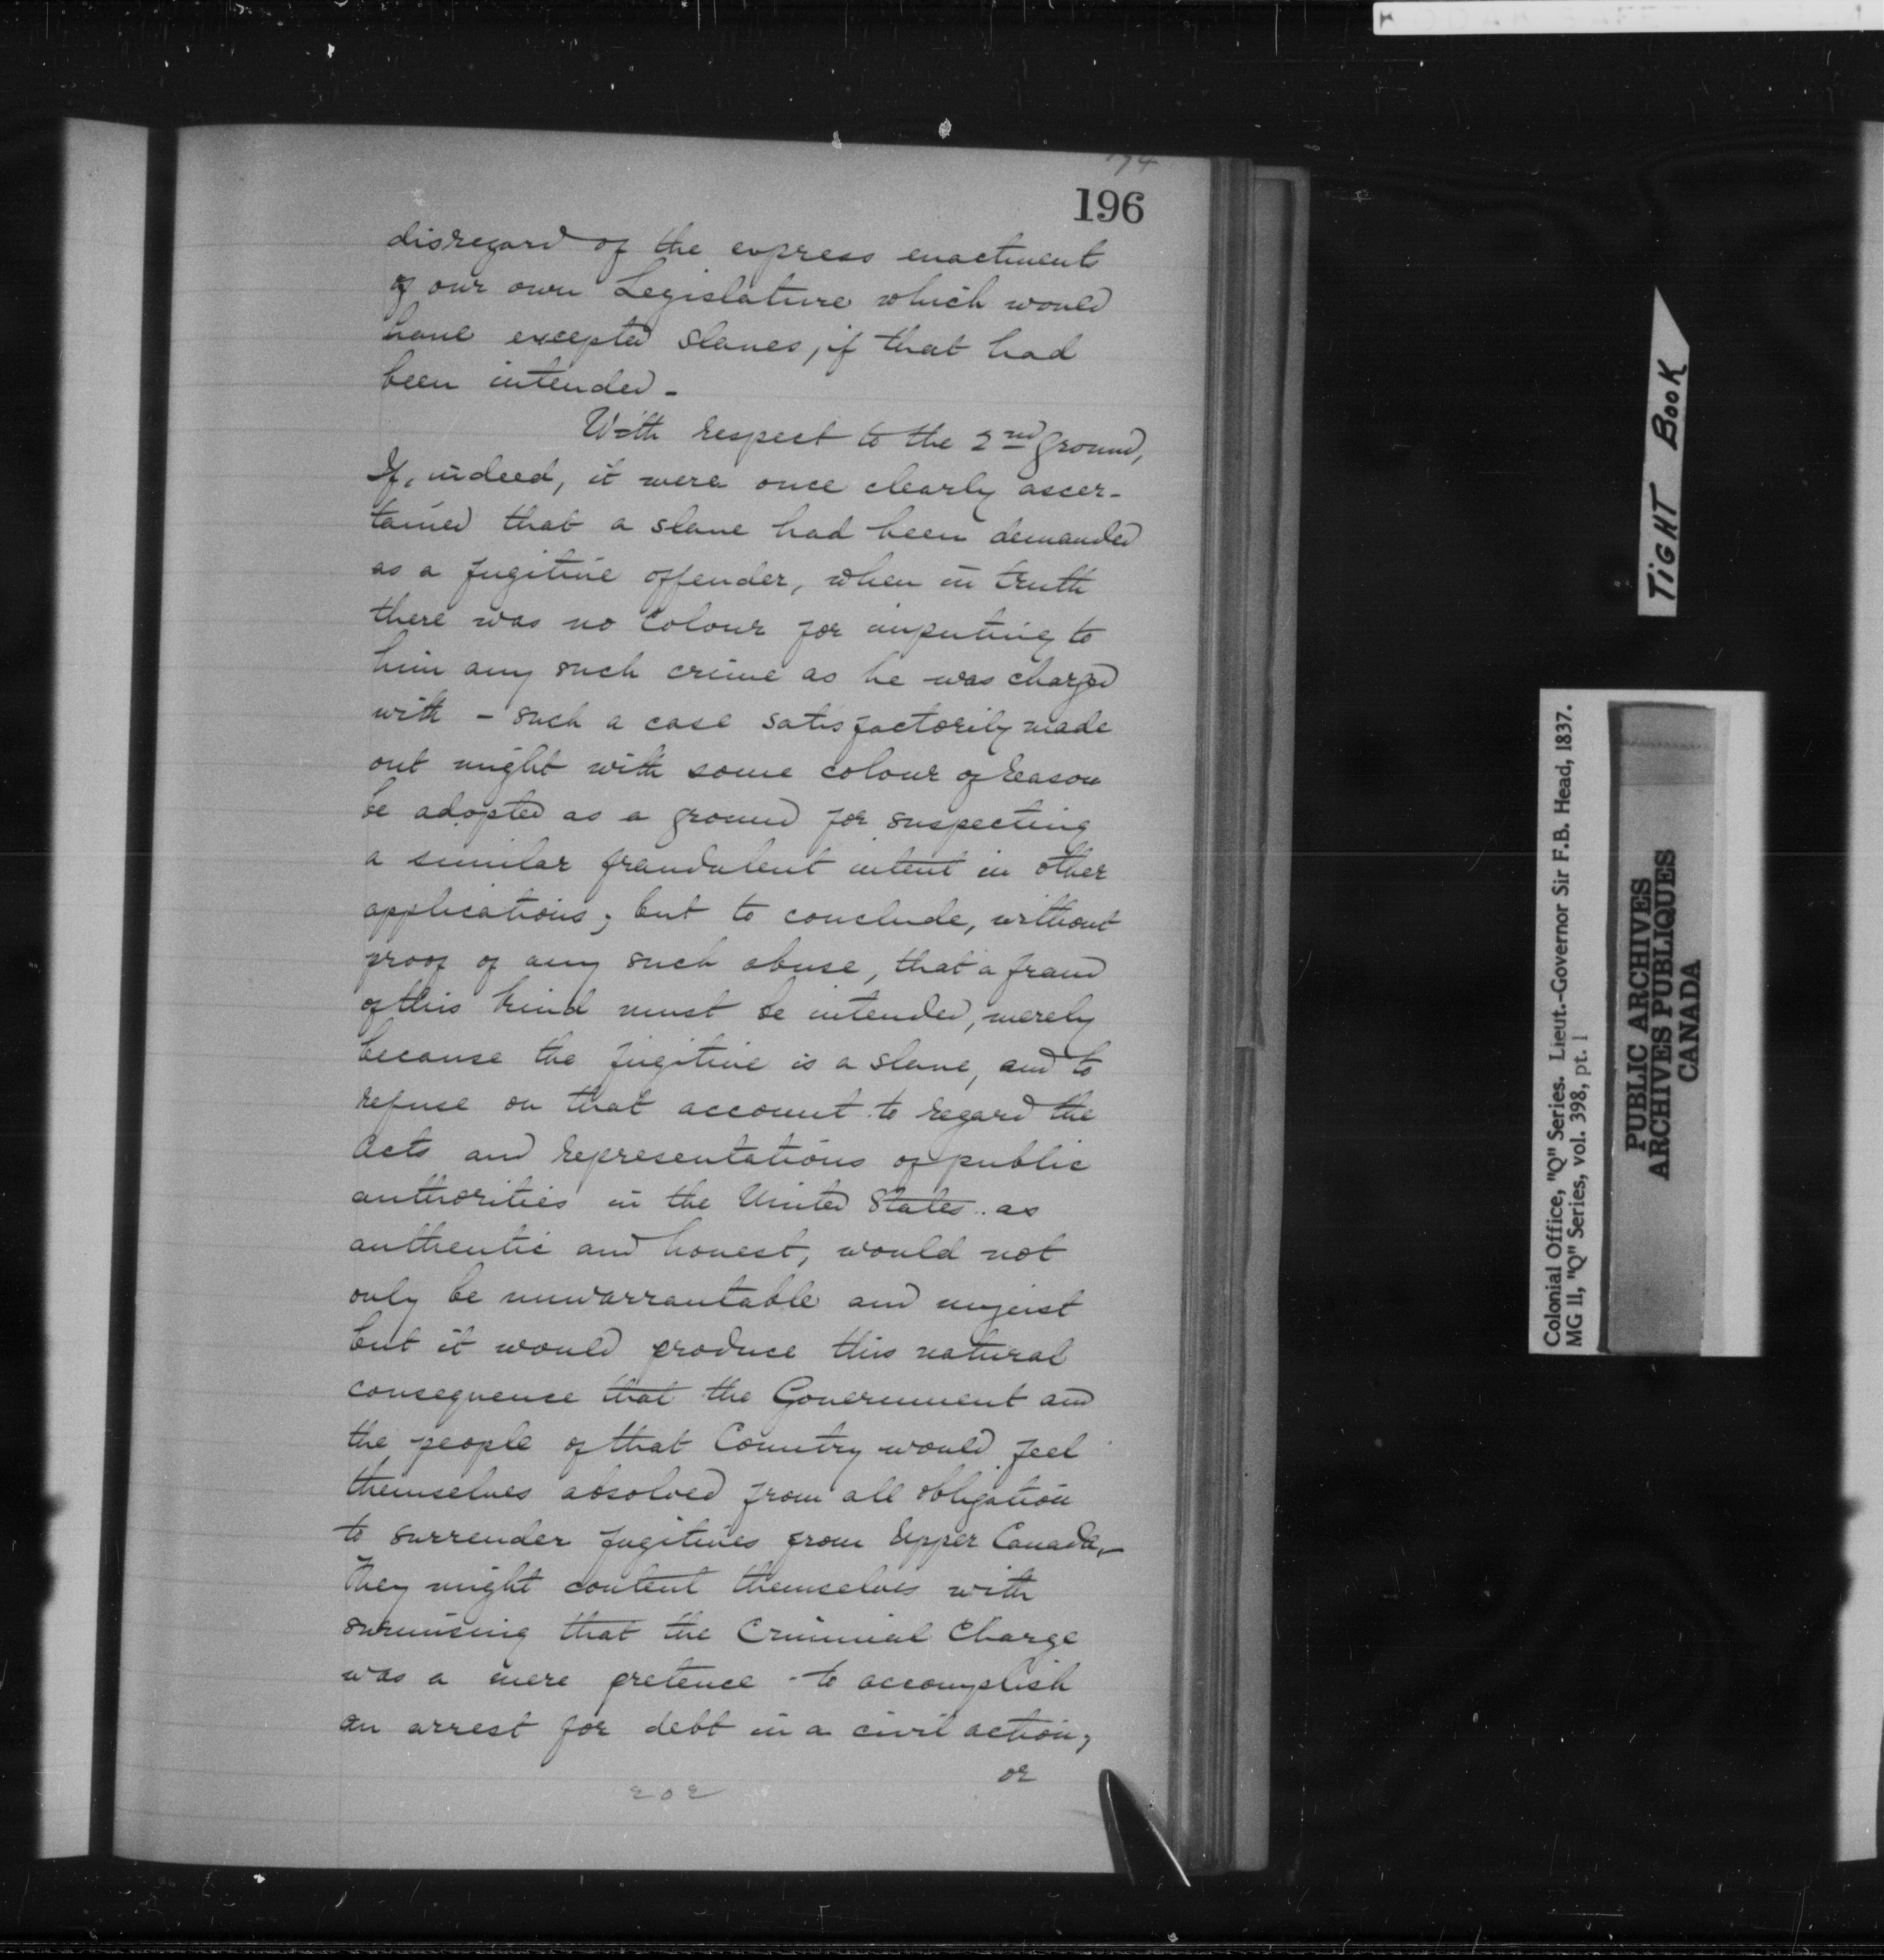 196
disregard of the express enactments
of our own Legislature which would
have excepted slaves, if that had
been intended -
With respect to the 2nd ground,
If, indeed, it were once clearly ascer-
tained that a slave had been demanded
as a fugitive offender, when in truth
there was no Colour for imputing to
him any such crime as he was charged
with - such a case satisfactorily made
out might with some colour of reason
be adopted as a ground for suspecting
a similar fraudulent intent in other
applications; but to conclude, without
proof of any such abuse, that a fraud
of this kind must be intended, merely
because the fugitive is a slave, and to
refuse on that account to regard the
acts and representations of public
authorities in the United States as
authentic and honest, would not
only be unwarrantable and unjust
but it would produce this natural
consequence that the Government and
the people of that Country would feel
themselves absolved from all obligation
to surrender fugitives from Upper Canada, -
They might content themselves with
surmising that the Criminal Charge
was a mere pretence to accomplish
an arrest for debt in a civil action,
or
202
TIGHT BOOK
Colonial Office, "Q" Series. Lieut.-Governor Sir F.B. Head, 1837.
MG 11, "Q" Series, vol. 398, pt. 1
PUBLIC ARCHIVES
ARCHIVES PUBLIQUES
CANADA